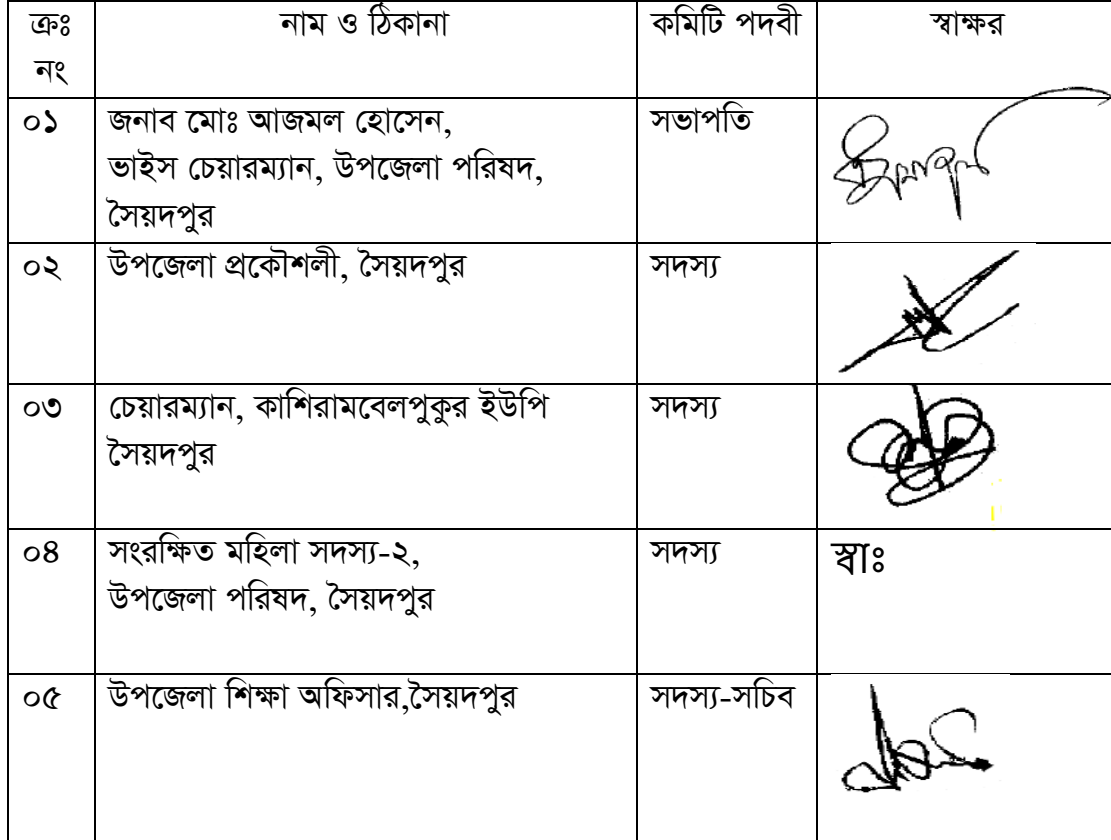 ক্রঃ নাম ও ঠিকানা কমিটি পদবী স্বাক্ষর
নং
০১ জনাব মোঃ আজমল হোসেন, সভাপতি
ভাইস চেয়ারম্যান, উপজেলা পরিষদ,
সৈয়দপুর
০২ উপজেলা প্রকৌশলী, সৈয়দপুর সদস্য
০৩ চেয়ারম্যান, কাশিরামবেলপুকুর ইউপি সদস্য
সৈয়দপুর
০৪ সংরক্ষিত মহিলা সদস্য-২, সদস্য স্বাঃ
উপজেলা পরিষদ, সৈয়দপুর
০৫ উপজেলা শিক্ষা অফিসার,সৈয়দপুর সদস্য-সচিব